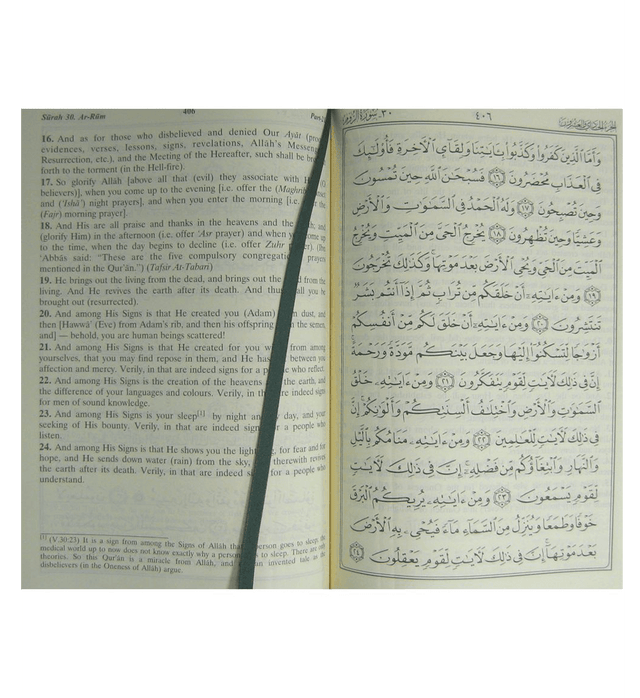 Sûrah 30. Ar-Rûm 406 Part
16. And as for those who disbelieved and denied Our Ayât (proofs,
evidences, verses, lessons, signs, revelations, Allâh's Messengers,
Resurrection, etc.), and the Meeting of the Hereafter, such shall be brought
forth to the torment (in the Hell-fire).
17. So glorify Allâh [above all that (evil) they associate with Him (O
believers)], when you come up to the evening [i.e. offer the (Maghrib) sunset
and ('Ishâ') night prayers], and when you enter the morning [i.e. offer the
(Fajr) morning prayer].
18. And His are all praise and thanks in the heavens and the earth; and
(glorify Him) in the afternoon (i.e. offer 'Asr prayer) and when you come up
to the time, when the day begins to decline (i.e. offer Zuhr prayer). (Ibn
'Abbâs said: "These are the five compulsory congregational prayers
mentioned in the Qur'ân.") (Tafsir At-Tabari)
19. He brings out the living from the dead, and brings out the dead from the
living. And He revives the earth after its death. And thus shall you be
brought out (resurrected).
20. And among His Signs is that He created you (Adam) from dust, and
then [Hawwâ' (Eve) from Adam's rib, and then his offspring from the semen,
and] — behold, you are human beings scattered!
21. And among His Signs is that He created for you wives from among
yourselves, that you may find repose in them, and He has put between you
affection and mercy. Verily, in that are indeed signs for a people who reflect.
22. And among His Signs is the creation of the heavens and the earth, and
the difference of your languages and colours. Verily, in that are indeed signs
for men of sound knowledge.
23. And among His Signs is your sleep[1] by night and by day, and your
seeking of His Bounty. Verily, in that are indeed signs for a people who
listen.
24. And among His Signs is that He shows you the lightning, for fear and for
hope, and He sends down water (rain) from the sky, and therewith revives
the earth after its death. Verily, in that are indeed signs for a people who
understand.
[1] (V.30:23) It is a sign from among the Signs of Allâh that a person goes to sleep, the
medical world up to now does not know exactly why a person goes to sleep. There are only
theories. So this Qur'ân is a miracle from Allâh, and not an invented tale as the
disbelievers (in the Oneness of Allâh) argue.
٣٠ - سورة الروم ٤٠٦ الجزء الحادي والعشرون
وَأَمَّا الَّذِينَ كَفَرُوا وَكَذَّبُوا بِـَٔايَـٰتِنَا وَلِقَآئِ الْـَٔاخِرَةِ فَأُو۟لَـٰٓئِكَ
فِى الْعَذَابِ مُحْضَرُونَ ﴿١٦﴾ فَسُبْحَـٰنَ اللَّهِ حِينَ تُمْسُونَ
وَحِينَ تُصْبِحُونَ ﴿١٧﴾ وَلَهُ الْحَمْدُ فِى السَّمَـٰوَٰتِ وَالْأَرْضِ
وَعَشِيًّا وَحِينَ تُظْهِرُونَ ﴿١٨﴾ يُخْرِجُ الْحَىَّ مِنَ الْمَيِّتِ وَيُخْرِجُ
الْمَيِّتَ مِنَ الْحَىِّ وَيُحْىِ الْأَرْضَ بَعْدَ مَوْتِهَا وَكَذَٰلِكَ تُخْرَجُونَ
﴿١٩﴾ وَمِنْ ءَايَـٰتِهِۦٓ أَنْ خَلَقَكُم مِّن تُرَابٍ ثُمَّ إِذَآ أَنتُم بَشَرٌ
تَنتَشِرُونَ ﴿٢٠﴾ وَمِنْ ءَايَـٰتِهِۦٓ أَنْ خَلَقَ لَكُم مِّنْ أَنفُسِكُمْ
أَزْوَٰجًا لِّتَسْكُنُوٓا إِلَيْهَا وَجَعَلَ بَيْنَكُم مَّوَدَّةً وَرَحْمَةً
إِنَّ فِى ذَٰلِكَ لَـَٔايَـٰتٍ لِّقَوْمٍ يَتَفَكَّرُونَ ﴿٢١﴾ وَمِنْ ءَايَـٰتِهِۦ خَلْقُ
السَّمَـٰوَٰتِ وَالْأَرْضِ وَاخْتِلَـٰفُ أَلْسِنَتِكُمْ وَأَلْوَٰنِكُمْ إِنَّ
فِى ذَٰلِكَ لَـَٔايَـٰتٍ لِّلْعَـٰلِمِينَ ﴿٢٢﴾ وَمِنْ ءَايَـٰتِهِۦ مَنَامُكُم بِالَّيْلِ
وَالنَّهَارِ وَابْتِغَآؤُكُم مِّن فَضْلِهِۦٓ إِنَّ فِى ذَٰلِكَ لَـَٔايَـٰتٍ
لِّقَوْمٍ يَسْمَعُونَ ﴿٢٣﴾ وَمِنْ ءَايَـٰتِهِۦ يُرِيكُمُ الْبَرْقَ
خَوْفًا وَطَمَعًا وَيُنَزِّلُ مِنَ السَّمَآءِ مَآءً فَيُحْىِۦ بِهِ الْأَرْضَ
بَعْدَ مَوْتِهَآ إِنَّ فِى ذَٰلِكَ لَـَٔايَـٰتٍ لِّقَوْمٍ يَعْقِلُونَ ﴿٢٤﴾